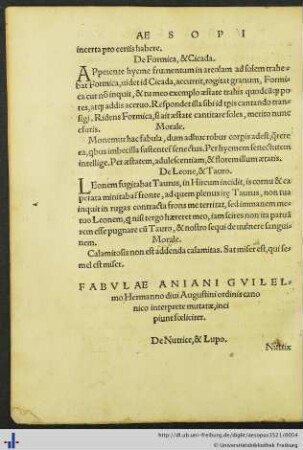 AE S O P I
incerta pro certis habere.
De Formica, & Cicada.
APpetente hyeme frumentum in areolam ad solem trahe-
bat Formica, uidet id Cicada, accurrit, rogitat granum, Formi
ca cur nō inquit, & tu meo exemplo æstate trahis
atq; addis aceruo. Respondet illa sibi id tēpis cantando tran-
sigi. Ridens Formica, si ait æstate cantitare soles, merito nunc
esuris.
Morale.
Monemur hac fabula, dum adhuc robur corpis adest,
ea, qbus imbecilla sustentet senectus. Per hyemem senectutem
intellige. Per æstatem, adulescentiam, & florem illum ætatis.
De Leone, & Tauro.
LEonem fugitabat Taurus, in Hircum incidit, is cornu & ca
perata minitabat fronte, ad quem plenus Taurus, non tua
inquit in rugas contracta frons me territat, sed immanem me-
tuo Leonem, q nisi tergo hæreret meo, iam scires non ita paruā
rem esse pugnare cū Tauro, & nostro sequi de uulnere sangui-
nem.
Morale.
Calamitosis non est addenda calamitas. Sat miser est, qui se-
mel est miser.
FABVLAE ANIANI GVILEL-
mo Hermanno diui Augustini ordinis cano
nico interprete mutatæ, inci
piunt fœliciter.
De Nutrice, & Lupo.
Nutrix
http://dl.ub.uni-freiburg.de/diglit/aesopus1521/0054
© Universitätsbibliothek Freiburg